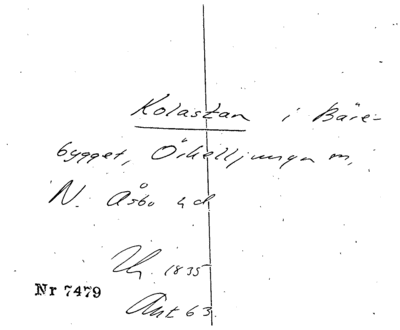 Kolastan i Bäre-
bygget, Örkelljunga m,
N. Åsbo hd
Uh. 1835
Nr 7479
Ant 63.